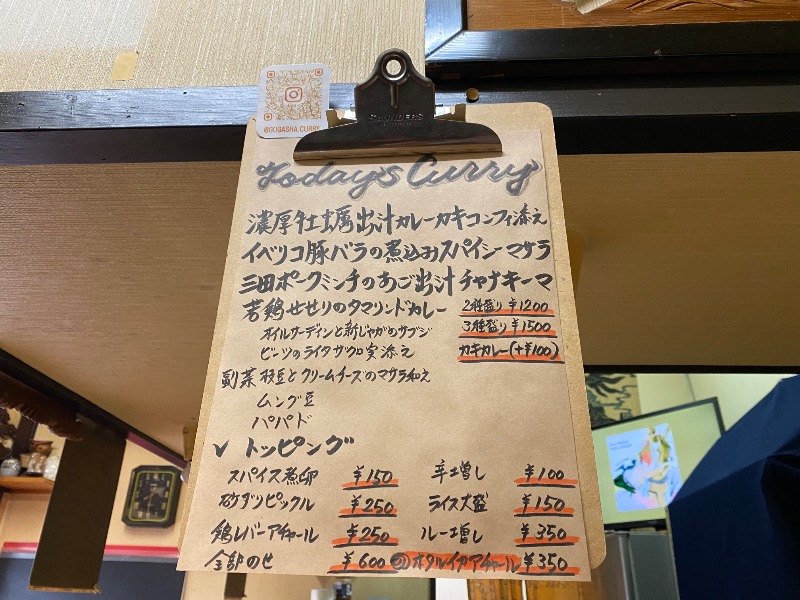 @GOGASHA.CURRY
SAUNDERS
Today's Curry
濃厚牡蠣出汁カレーカキコンフィ添え
イベリコ豚バラの煮込みスパイシーマサラ
三田ポークミンチのあご出汁チャナキーマ
若鶏せせりのタマリンドカレー 2種盛り ¥1200
オイルサーディンと新じゃがのサブジ 3種盛り ¥1500
ビーツのライタザクロ実添え カキカレー(+¥100)
副菜 枝豆とクリームチーズのマサラ和え
ムング豆
パパド
✓ トッピング
スパイス煮卵 ¥150 辛さ増し ¥100
砂ズリピックル ¥250 ライス大盛 ¥150
鶏レバーアチャール ¥250 ルー増し ¥350
全部のせ ¥600 ホタルイカアチャール ¥350